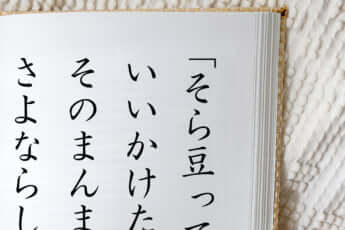 「そら豆って
いいかけた
そのまんま
さよならし